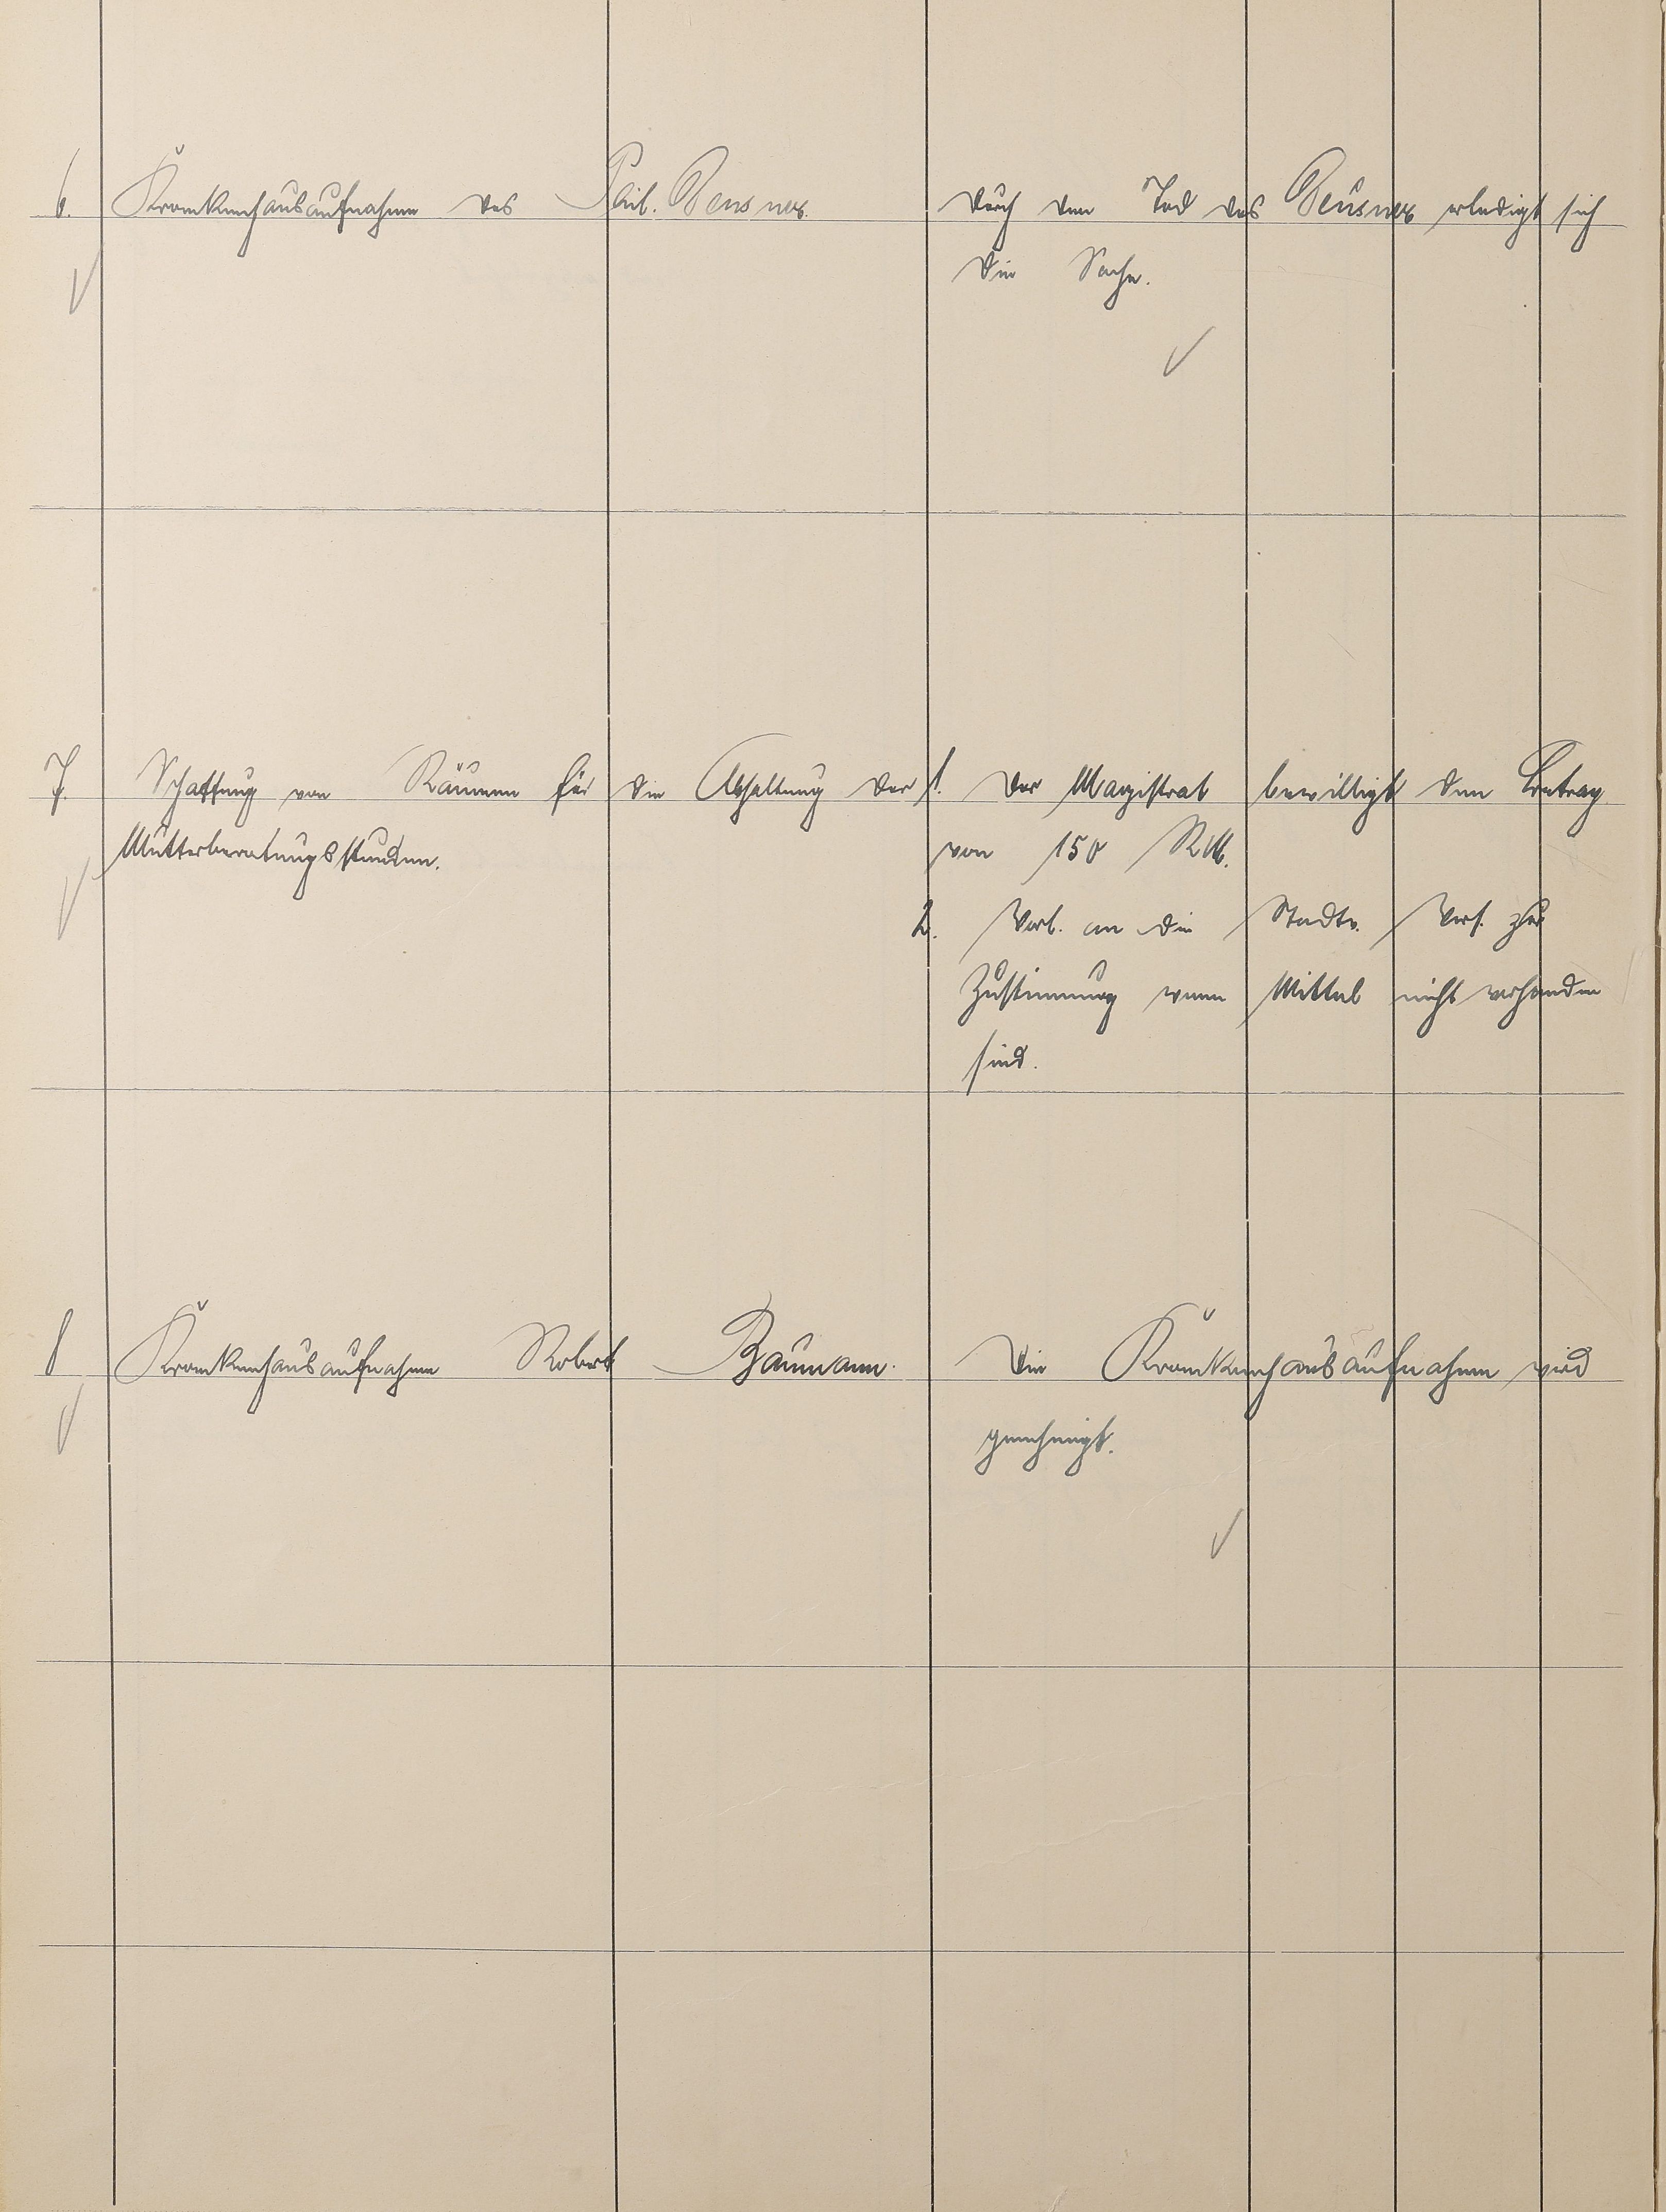 6. Krankenhausaufnahme des Phil. Beusner.
Durch den Tod des Beusner erledigt sich
die Sache.
7. Schaffung von Räumen für die Abhaltung der
Mütterberatungsstunden.
1. Der Magistrat bewilligt den Betrag
von 150 RM.
2. Vorl. an die Stadtv. Vers. zur
Zustimmung wenn Mittel nicht vorhanden
sind.
8 Krankenhausaufnahme Robert Baumann.
Die Krankenhausaufnahme wird
genehmigt.